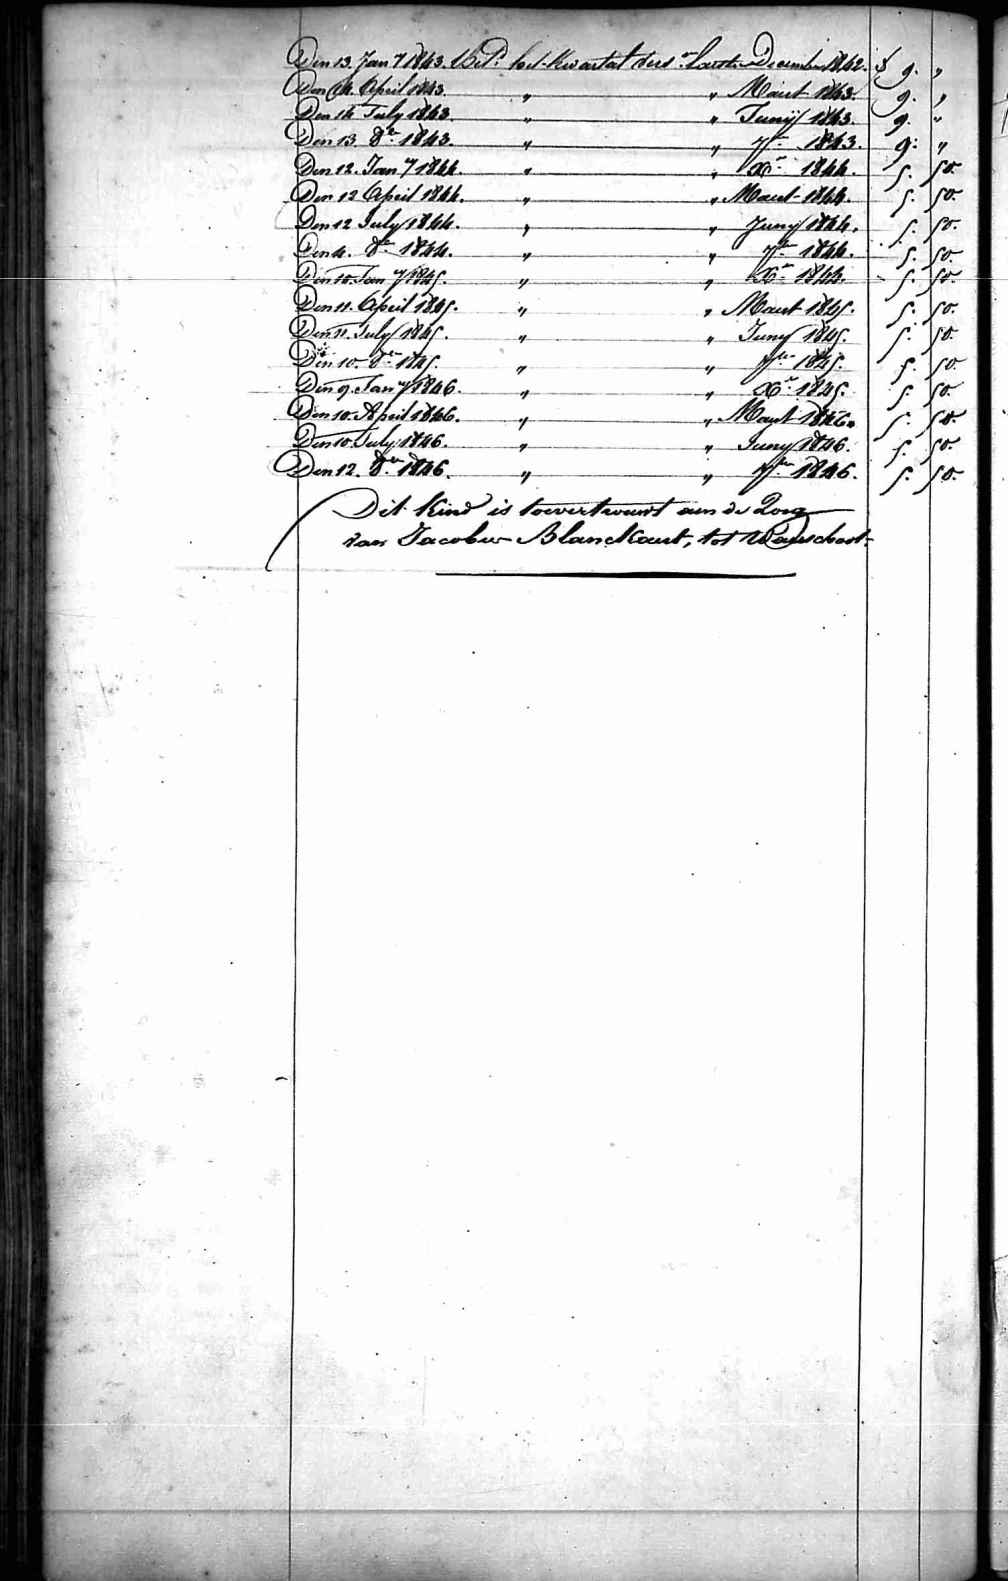 Den 13 Jan y 1843. Bet.d het kwartal der laatste December 1842. f 9. "
Den 14 April 1843. " " Maart 1843. 9. "
Den 14 July 1843. " " Junÿ 1843. 9. "
Den 13 8er 1843. " " 7er 1843. 9. "
Den 12. Jan y 1844. " " Xr 1844. 5. 50.
Den 12 April 1844. " " Maart 1844. 5. 50.
Den 12 July 1844. " " Juny 1844. 5. 50.
Den 4. 8er 1844. " " 7er 1844. 5. 50.
Den 10. Jan y 1845. " " Xr 1844. 5. 50.
Den 11. April 1845. " " Maart 1845. 5. 50.
Den 11. July 1845. " " Juny 1845. 5. 50.
Den 10. 8er 1845. " " 7er 1845. 5. 50.
Den 9. Jan y 1846. " " Xr 1845. 5. 50.
Den 10. April 1846. " " Maart 1846. 5. 50.
Den 10. July 1846. " " Juny 1846. 5. 50.
Den 12. 8er 1846. " " 7er 1846. 5. 50.
Dit Kind is toevertrouwt aan de Zorg
van Jacobus Blanckaert, tot